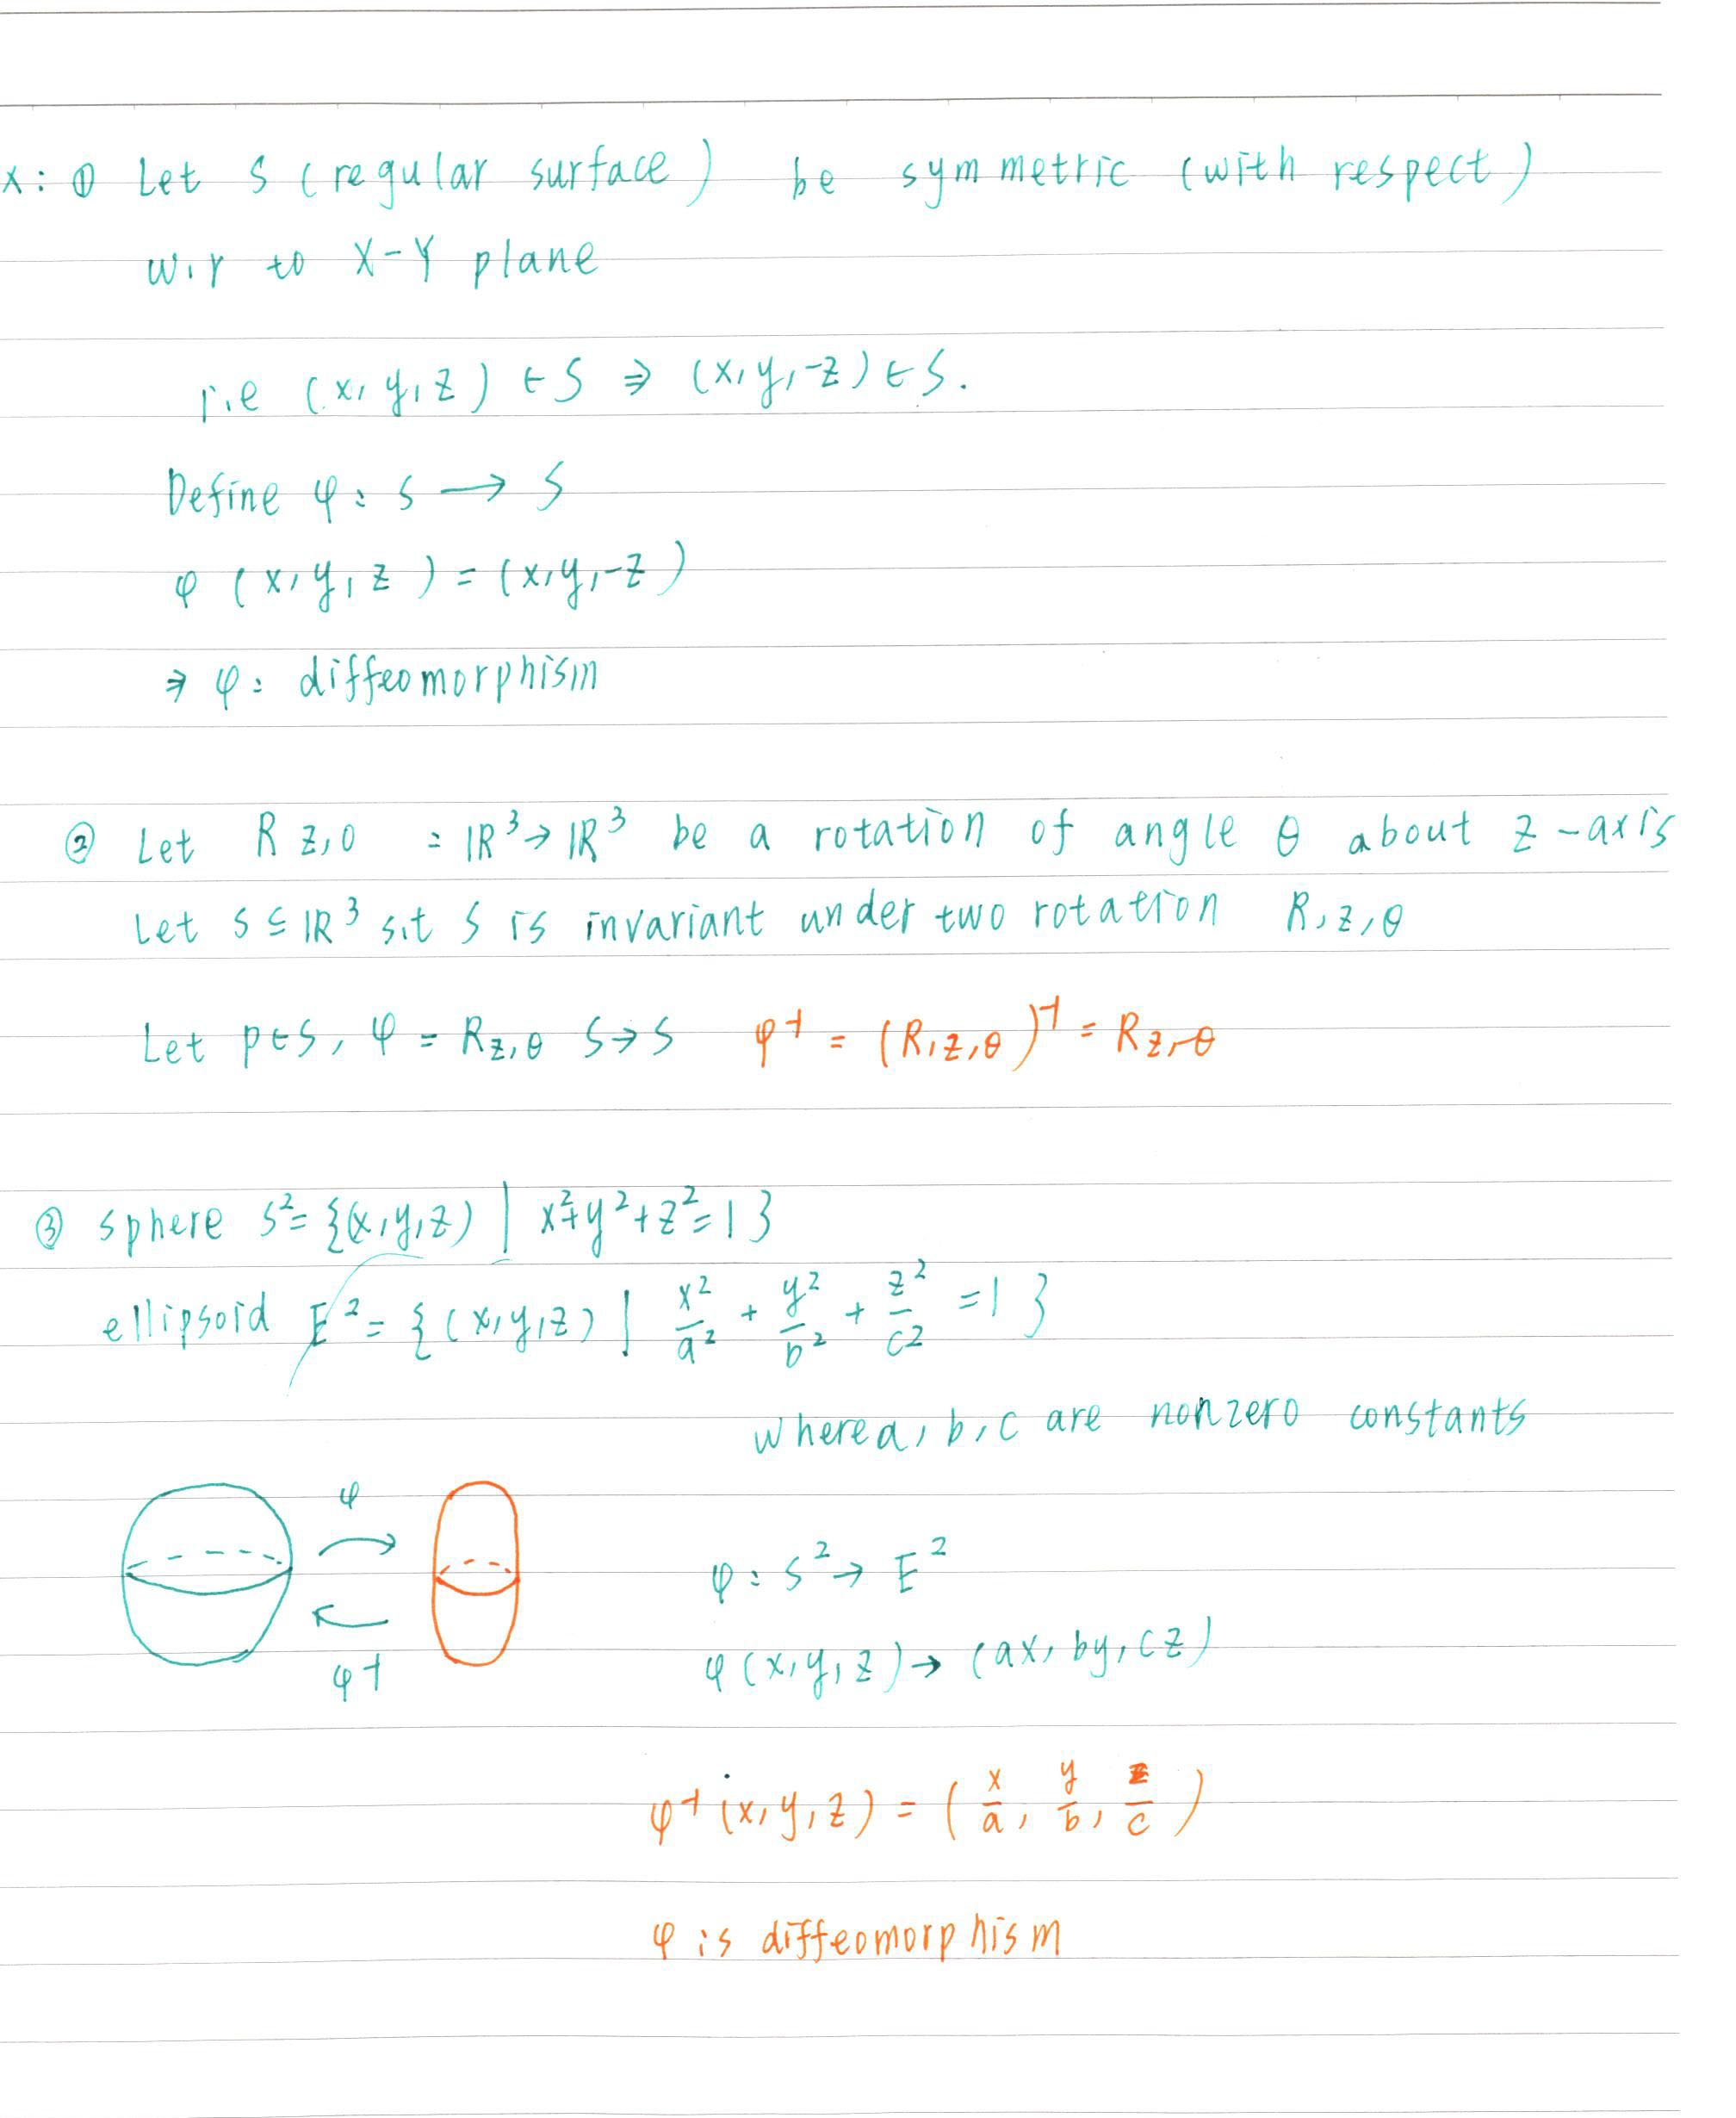 x: ① Let S (regular surface) be symmetric (with respect)
w.r to X-Y plane
i.e (x,y,z) ∈ S ⇒ (x,y,-z) ∈ S.
Define φ: S → S
φ (x,y,z) = (x,y,-z)
⇒ φ: diffeomorphism
② Let R z,0 = ℝ³→ℝ³ be a rotation of angle θ about z-axis
Let S ⊆ ℝ³ s.t S is invariant under two rotation R,z,θ
Let p∈S, φ = R_{z,θ} S→S φ⁻¹ = (R,z,θ)⁻¹ = R_{z,-θ}
③ sphere S² = {(x,y,z) | x²+y²+z²=1}
ellipsoid E² = {(x,y,z) | x²/a² + y²/b² + z²/c² = 1}
where a, b, c are nonzero constants
φ
φ: S² → E²
φ(x,y,z) → (ax, by, cz)
φ⁻¹
φ⁻¹(x,y,z) = (x/a, y/b, z/c)
φ is diffeomorphism